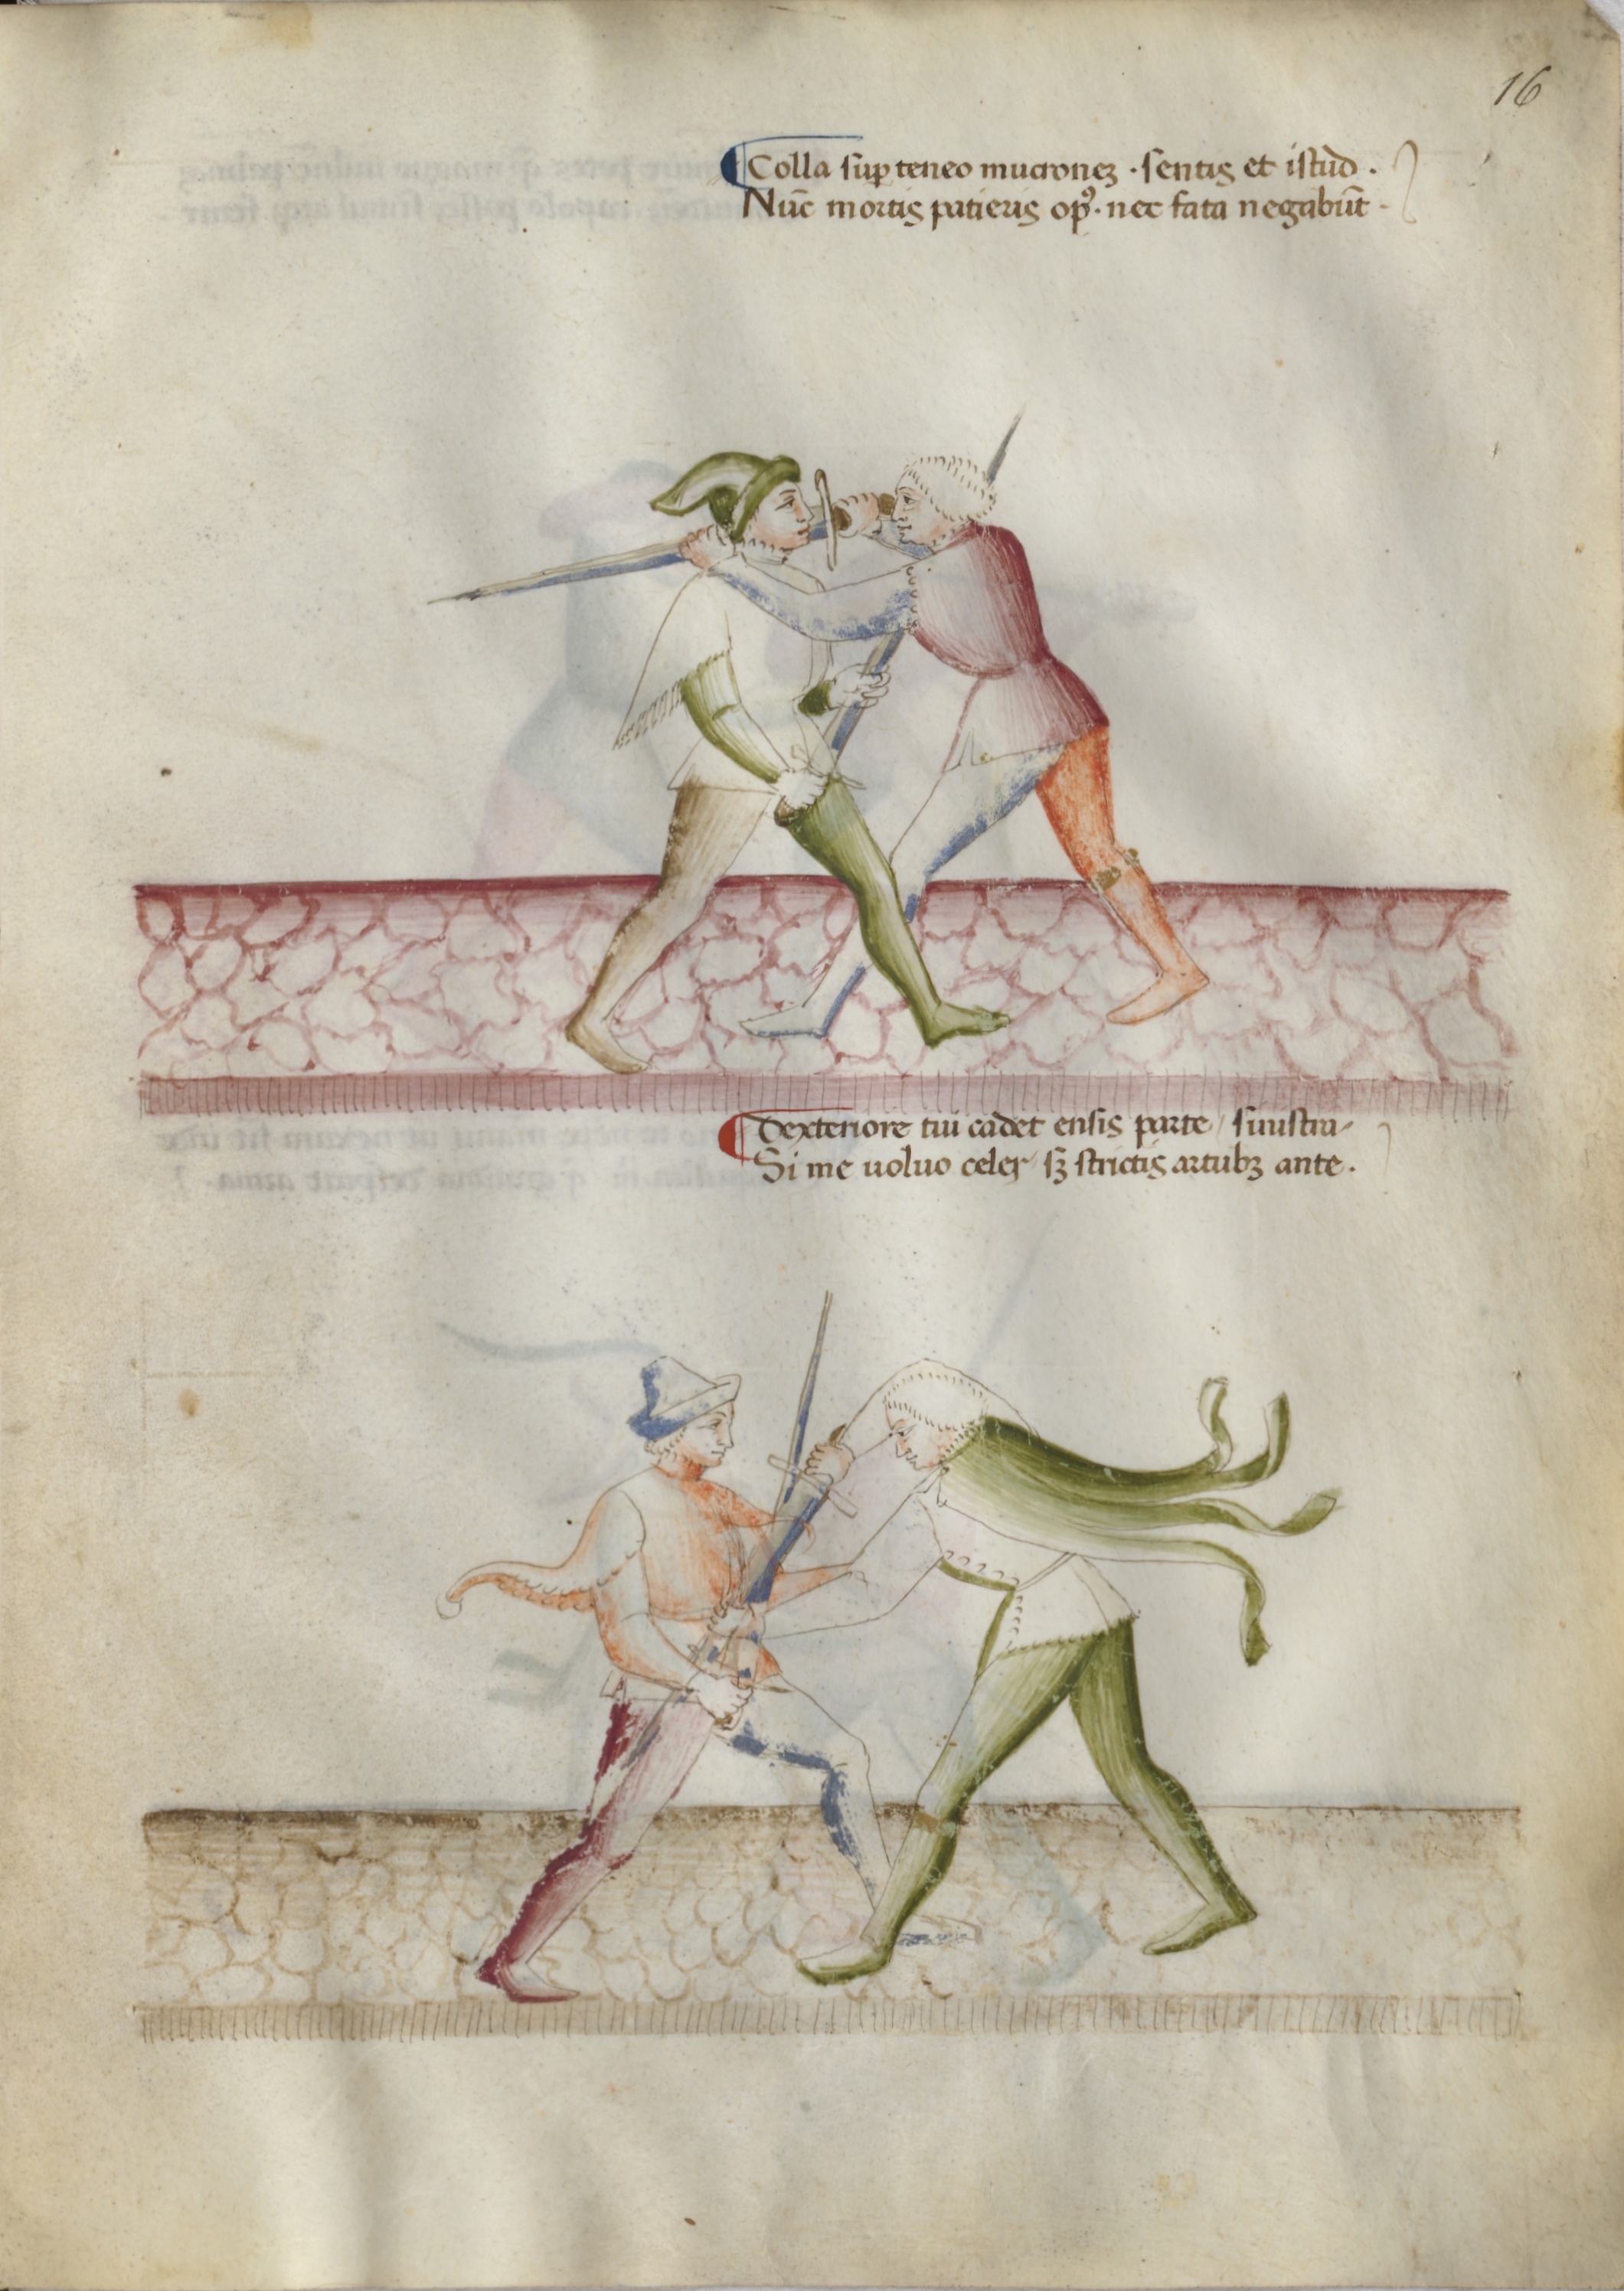 16
Colla suꝑ teneo mucroneꝫ · sentis et istud ·
Nūc mortis patieris opꝰ · nec fata negabūt ·
Dexteriore tui cadet ensis parte / sinistra
Si me uoluo celer / sꝫ strictis artubꝫ ante ·